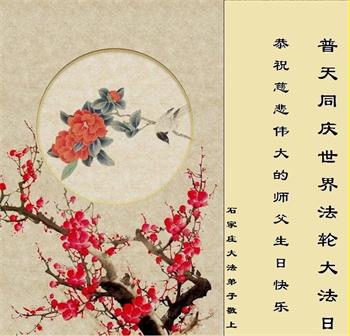 普天同庆世界法轮大法日
恭祝慈悲伟大的师父生日快乐
石家庄大法弟子敬上